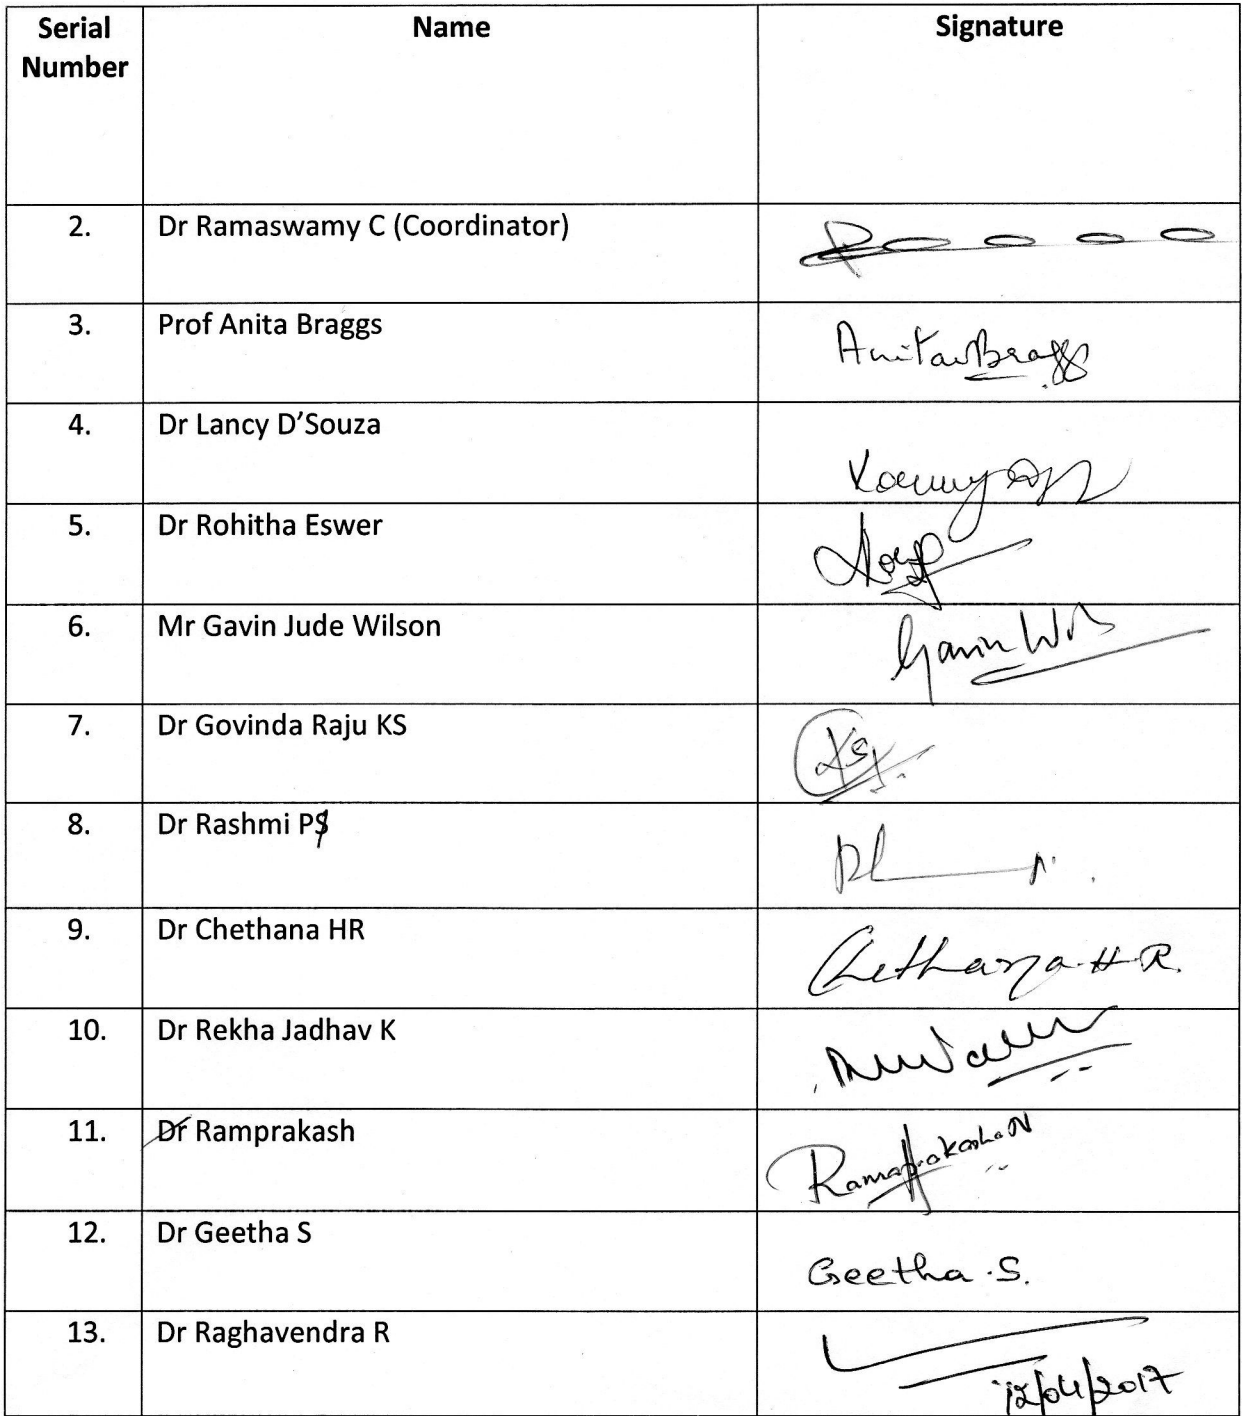 Serial Number Name Signature
2. Dr Ramaswamy C (Coordinator)
3. Prof Anita Braggs Anita Braggs
4. Dr Lancy D'Souza
5. Dr Rohitha Eswer
6. Mr Gavin Jude Wilson Gavin
7. Dr Govinda Raju KS KS
8. Dr Rashmi P
9. Dr Chethana HR Chethana H R.
10. Dr Rekha Jadhav K
11. Dr Ramprakash Ramaprakasha N
12. Dr Geetha S Geetha S.
13. Dr Raghavendra R 12/04/2017